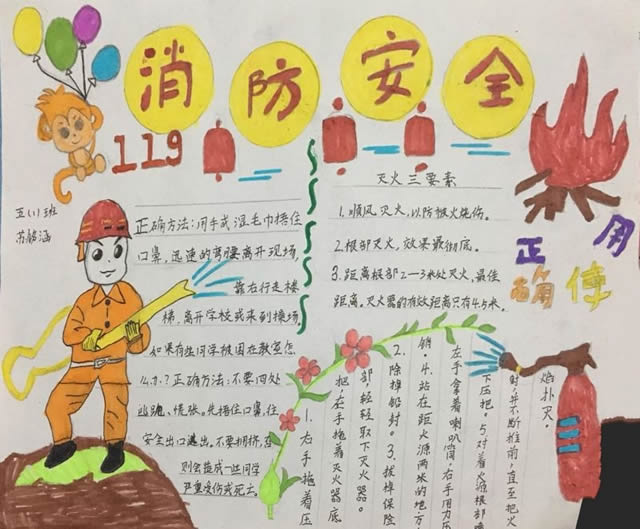 消防安全
119
五(1)班
苏铭涵
正确方法:用手或湿毛巾捂住
口鼻,迅速的弯腰离开现场,
靠右行走楼
梯,离开学校或来到操场,
如果有些同学被困在教室怎
么办?正确方法:不要四处
乱跑、慌张。先捂住口鼻,往
安全出口逃出,不要拥挤,否
则会造成一些同学
严重受伤或死去。
灭火三要素
1.顺风灭火,以防被火烧伤。
2.根部灭火,效果最彻底。
3.距离根部2—3米处灭火,最佳
距离。灭火器的有效距离只有4.5米。
正确使用
1.右手拖着压
把,左手拖着灭火器底
部,轻轻取下灭火器。
2.除掉铅封。3.拔掉保险
销。4.站在距火源两米的地方
左手拿着喇叭筒,右手用力压
下压把。5.对着火源根部喷
射,并不断推前,直至把火
焰扑灭。